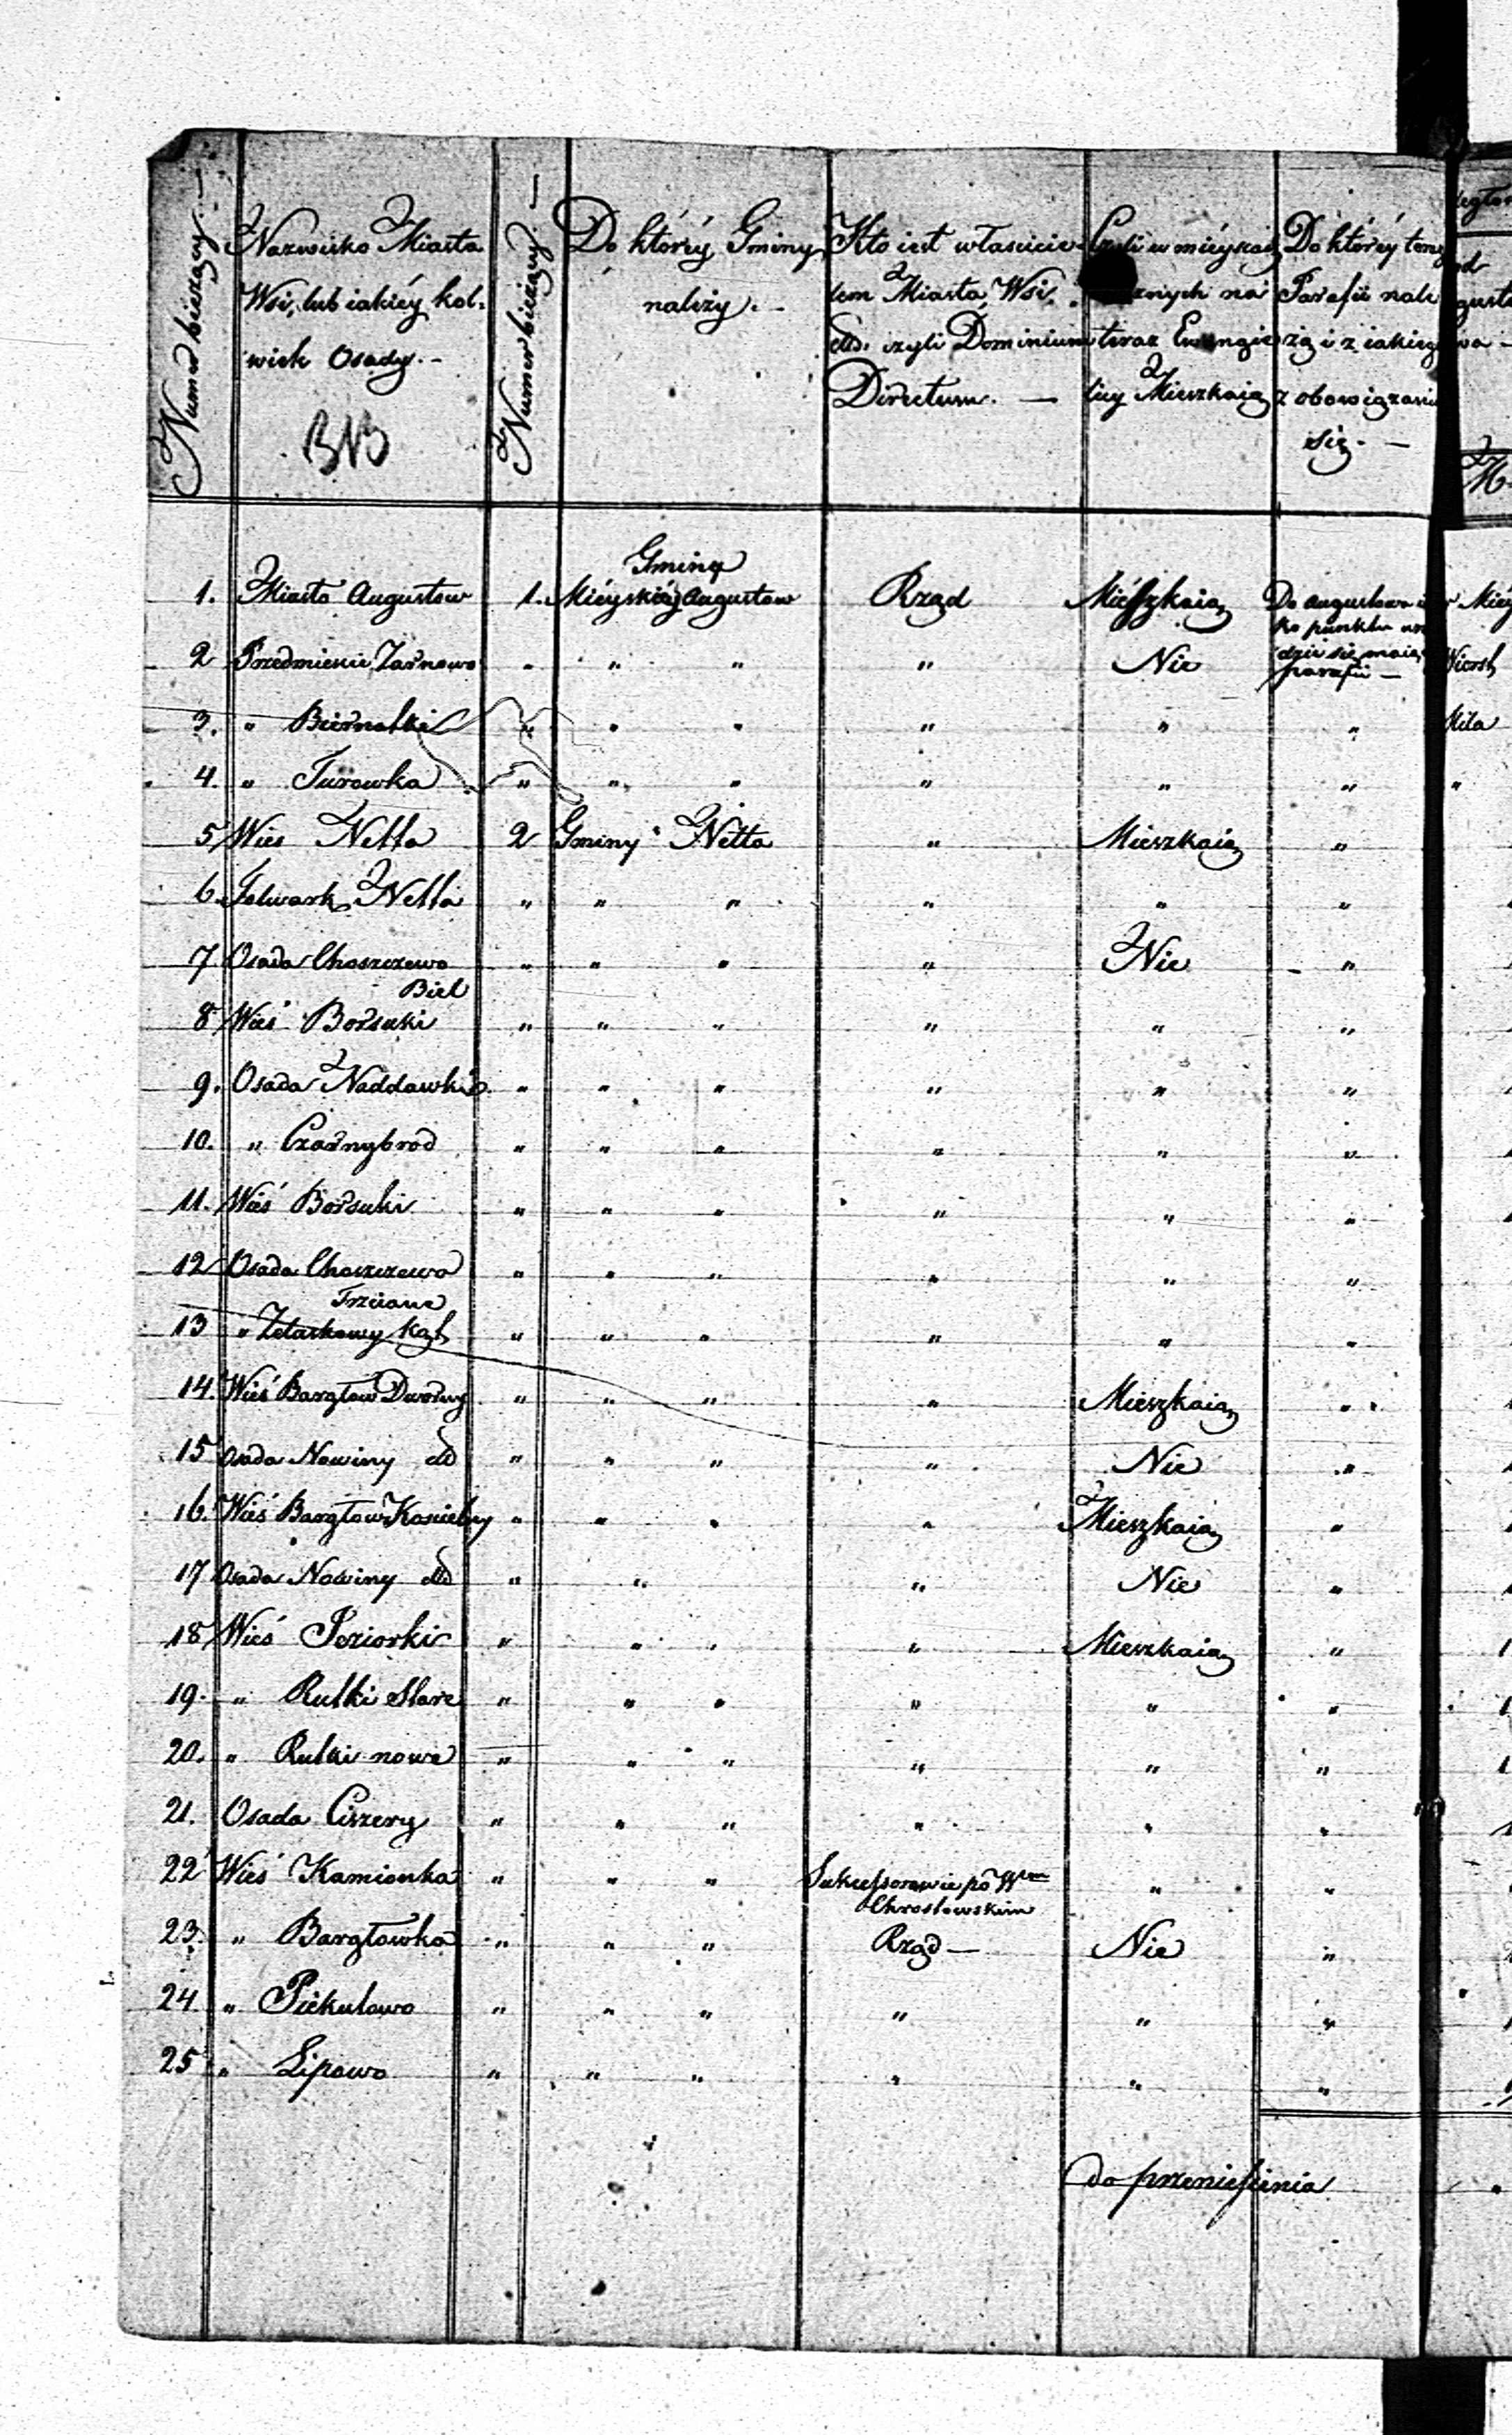 Numer bieżący. —
Nazwisko Miasta
Wsi, lub iakiéy kol-
wiek Osady. –
BNB
Numer bieżący. —
Do któréy Gminy
należy. –
Kto iest właścicie-
lem Miasta, Wsi
etc. czyli Dominium
Directum. —
Czyli w mieyscach
nai
teraz Ewangie
licy Mieszkaią
Do któréy teraz
Parafii nale
żą i z iakiego
z obowiązani
się. —
M
1. Miasto Augustow 1. Gminy Miéyskiéy Augustow Rząd Mieszkaią Do Augustowa
ko punktu
2 Przedmieście Żarnowo „ „ „ „ Nie
dzie się maią
parafii —
3. „ Biernatki „ „ „ „ „ „
4. „ Turowka „ „ „ „ „ „
5 Wies Netta 2 Gminy Netta „ Mieszkaią „
6. Folwark Netta „ „ „ „ „ „
7 Osada Choszczewo „ „ „ „ Nie „
Biel
8 Wieś Borsuki „ „ „ „ „ „
9. Osada Naddawki „ „ „ „ „ „
10. „ Czarnybrod „ „ „ „ „ „
11. Wieś Borsuki „ „ „ „ „ „
12 Osada Choszczewo „ „ „ „ „ „
Trzciane
13 „ Żelaskowy Kąt „ „ „ „ „ „
14. Wieś Bargłow Dworny „ „ „ „ Mieszkaią „
15 Osada Nowiny dto „ „ „ „ Nie „
16. Wieś Bargłow Kościelny „ „ „ „ Mieszkaią „
17 Osada Nowiny dto „ „ „ Nie „
18 Wieś Jeziorki „ „ „ „ Mieszkaią „
19. „ Rutki Stare „ „ „ „ „ „
20. „ Rutki nowe „ „ „ „ „ „
21. Osada Ciszewy „ „ „ „ „ „
22 Wieś Kamionka „ „ „ Sukcessorowie po Wnm „ „
Chrostowskim
23. „ Bargłowka „ „ „ Rząd — Nie „
24 „ Piekutowo „ „ „ „ „ „
25 „ Lipowo „ „ „ „ „ „
do przeniesienia